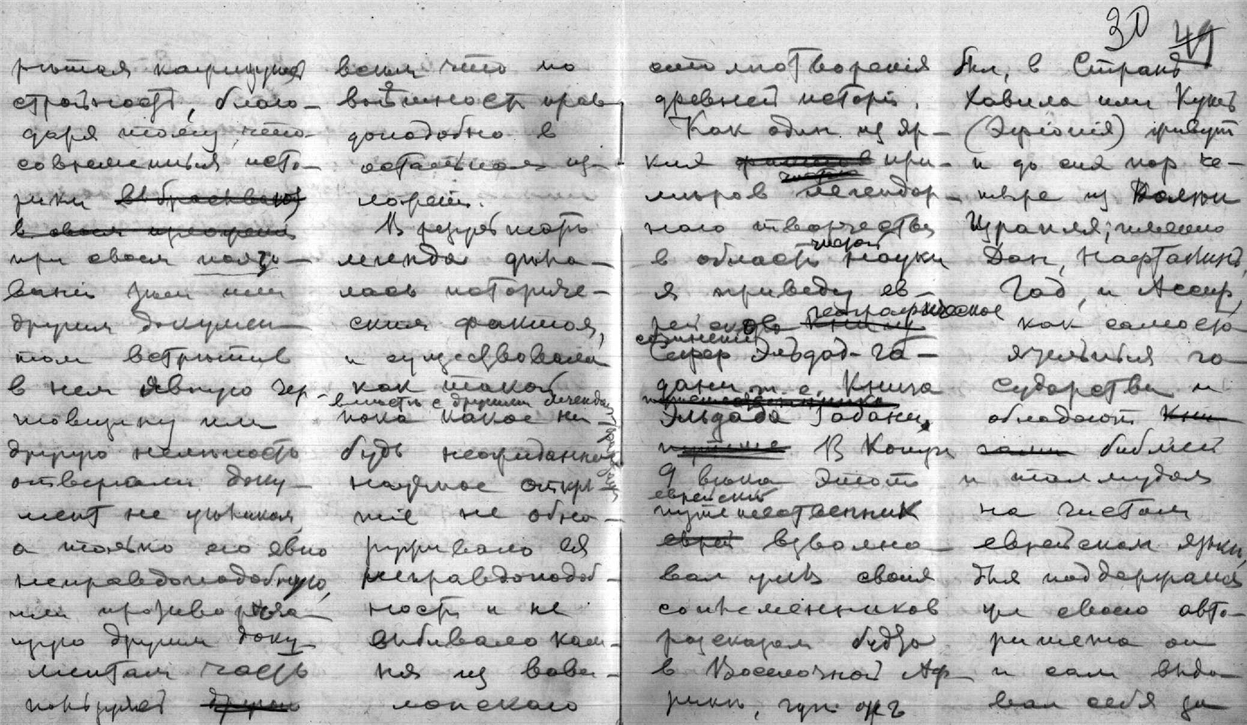 30 49
рится кажущуюся
стройность, благо-
даря тому, что
современные исто-
рики выбрасывают
в своем изложении
при своем
вании тем или
другим докумен-
том встретив
в нем явную чер-
товщину или
другую нелепость
отвергали доку-
мент не целиком,
а только его явно
неправдоподобную,
или противореча-
щую другим доку-
ментам часть
всем что по
внешности прав-
доподобно в
остальном из-
ложении.
В результате
легенда дела-
лась историче-
ским фактом,
и существовала
как таковой
вместе с другими легендами
пока какое ни-
будь неожиданное
научное откры-
тие не обна-
руживало ея
неправдоподоб-
ность и не
выбивало кам-
ня из вави-
лонского
столпотворения
древней истории.
Как один из яр-
ких при-
меров чисто
легендар-
ного творчества
в области чистой науки
я приведу ев-
рейское географическое
сочинение
Сефер Эльдад-га-
дани, т. е. Книга
путешественника
Эльдада Габани.
В конце
9 века этот
еврейский
путешественник
еврей взволно-
вал умы своих
современников
рассказом будто
в Восточной Аф-
рике, где он
был, в Стране
Хавила или Кушь
(Эфиопия) живут
и до сих пор че-
тыре из колен
Израиля; именно
Дан, Нафталин,
Гад, и Ассир,
как самосто-
ятельныя го-
сударства и
обладают
библией
и талмудом
на чистом
еврейском языке,
для поддержания
же своего авто-
ритета он
и сам выда-
вал себя за